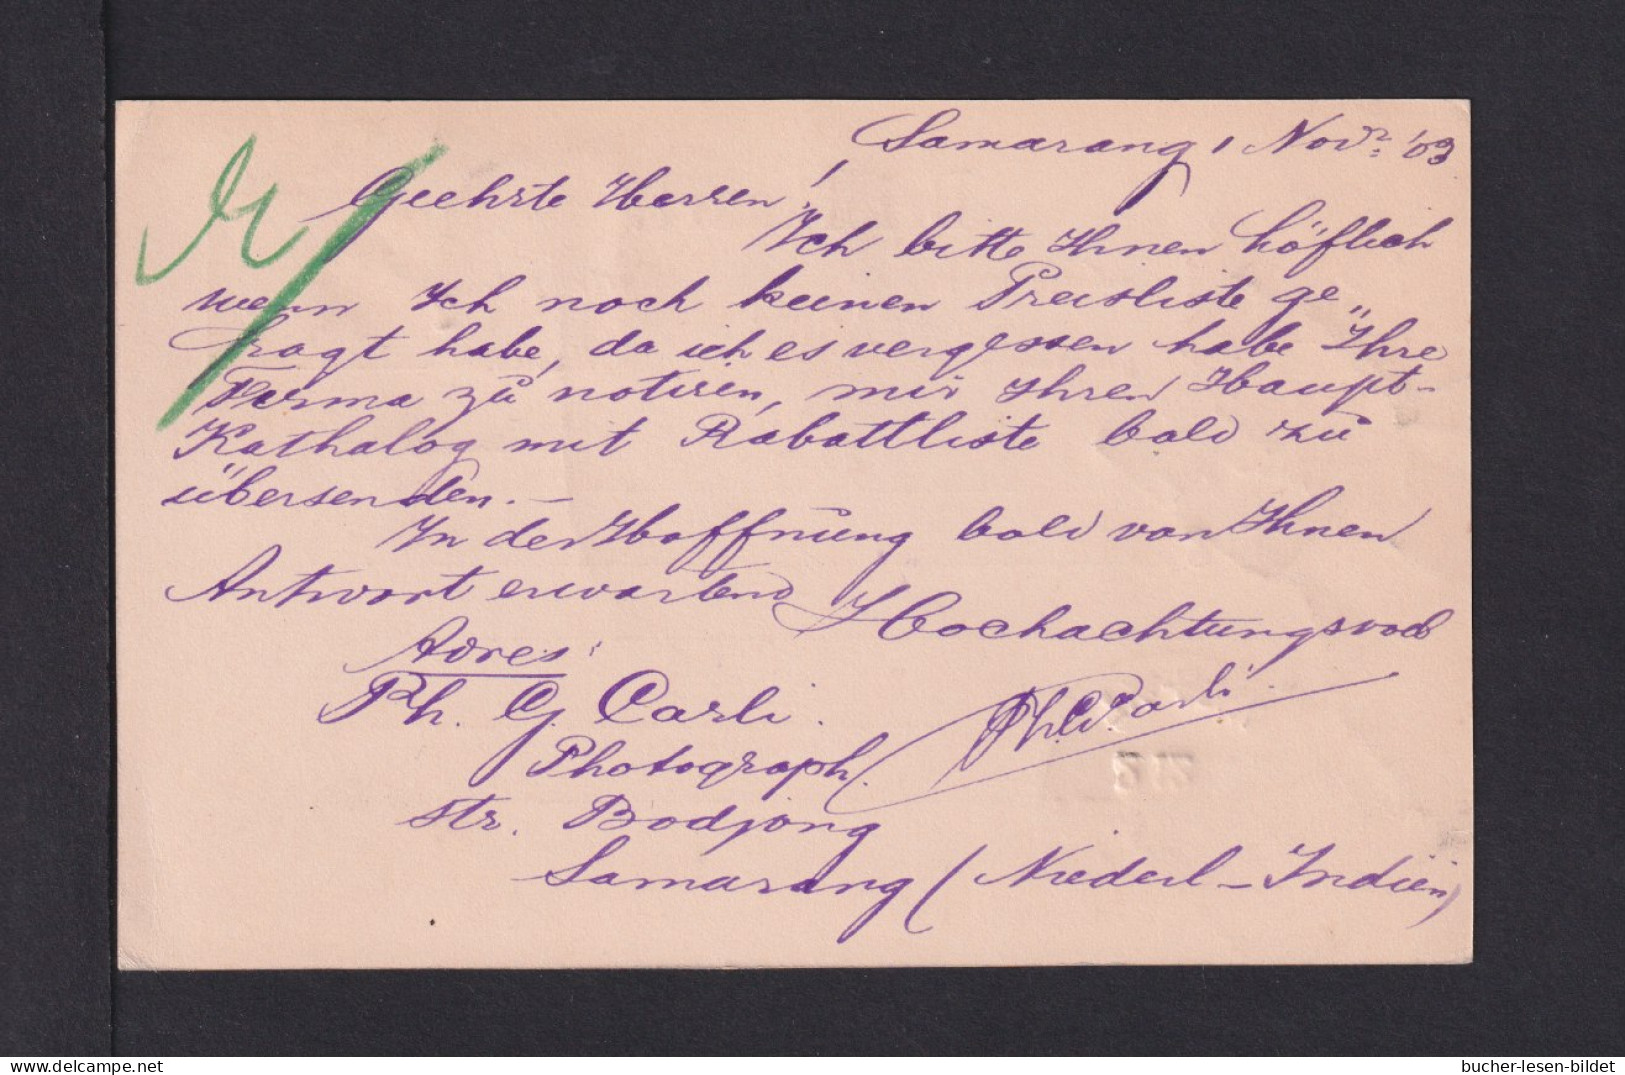 Samarang, 1 Nov? '03
Geehrte Herren!
Ich bitte Ihnen höflich
wenn Ich noch keinen Preisliste ge„
fragt habe, da ich es vergessen habe Ihre
Ferma zu notiren, mir Ihren Haupt-
Kathalog mit Rabattliste bald zu
übersenden. –
In der Hoffnung bald von Ihnen
Antwort erwartend Hochachtungsvoll
Adres:
Ph. G. Carli.
Photograph.
str. Bodjong
Samarang (Niederl-Indiën)
bucher-lesen-bildet